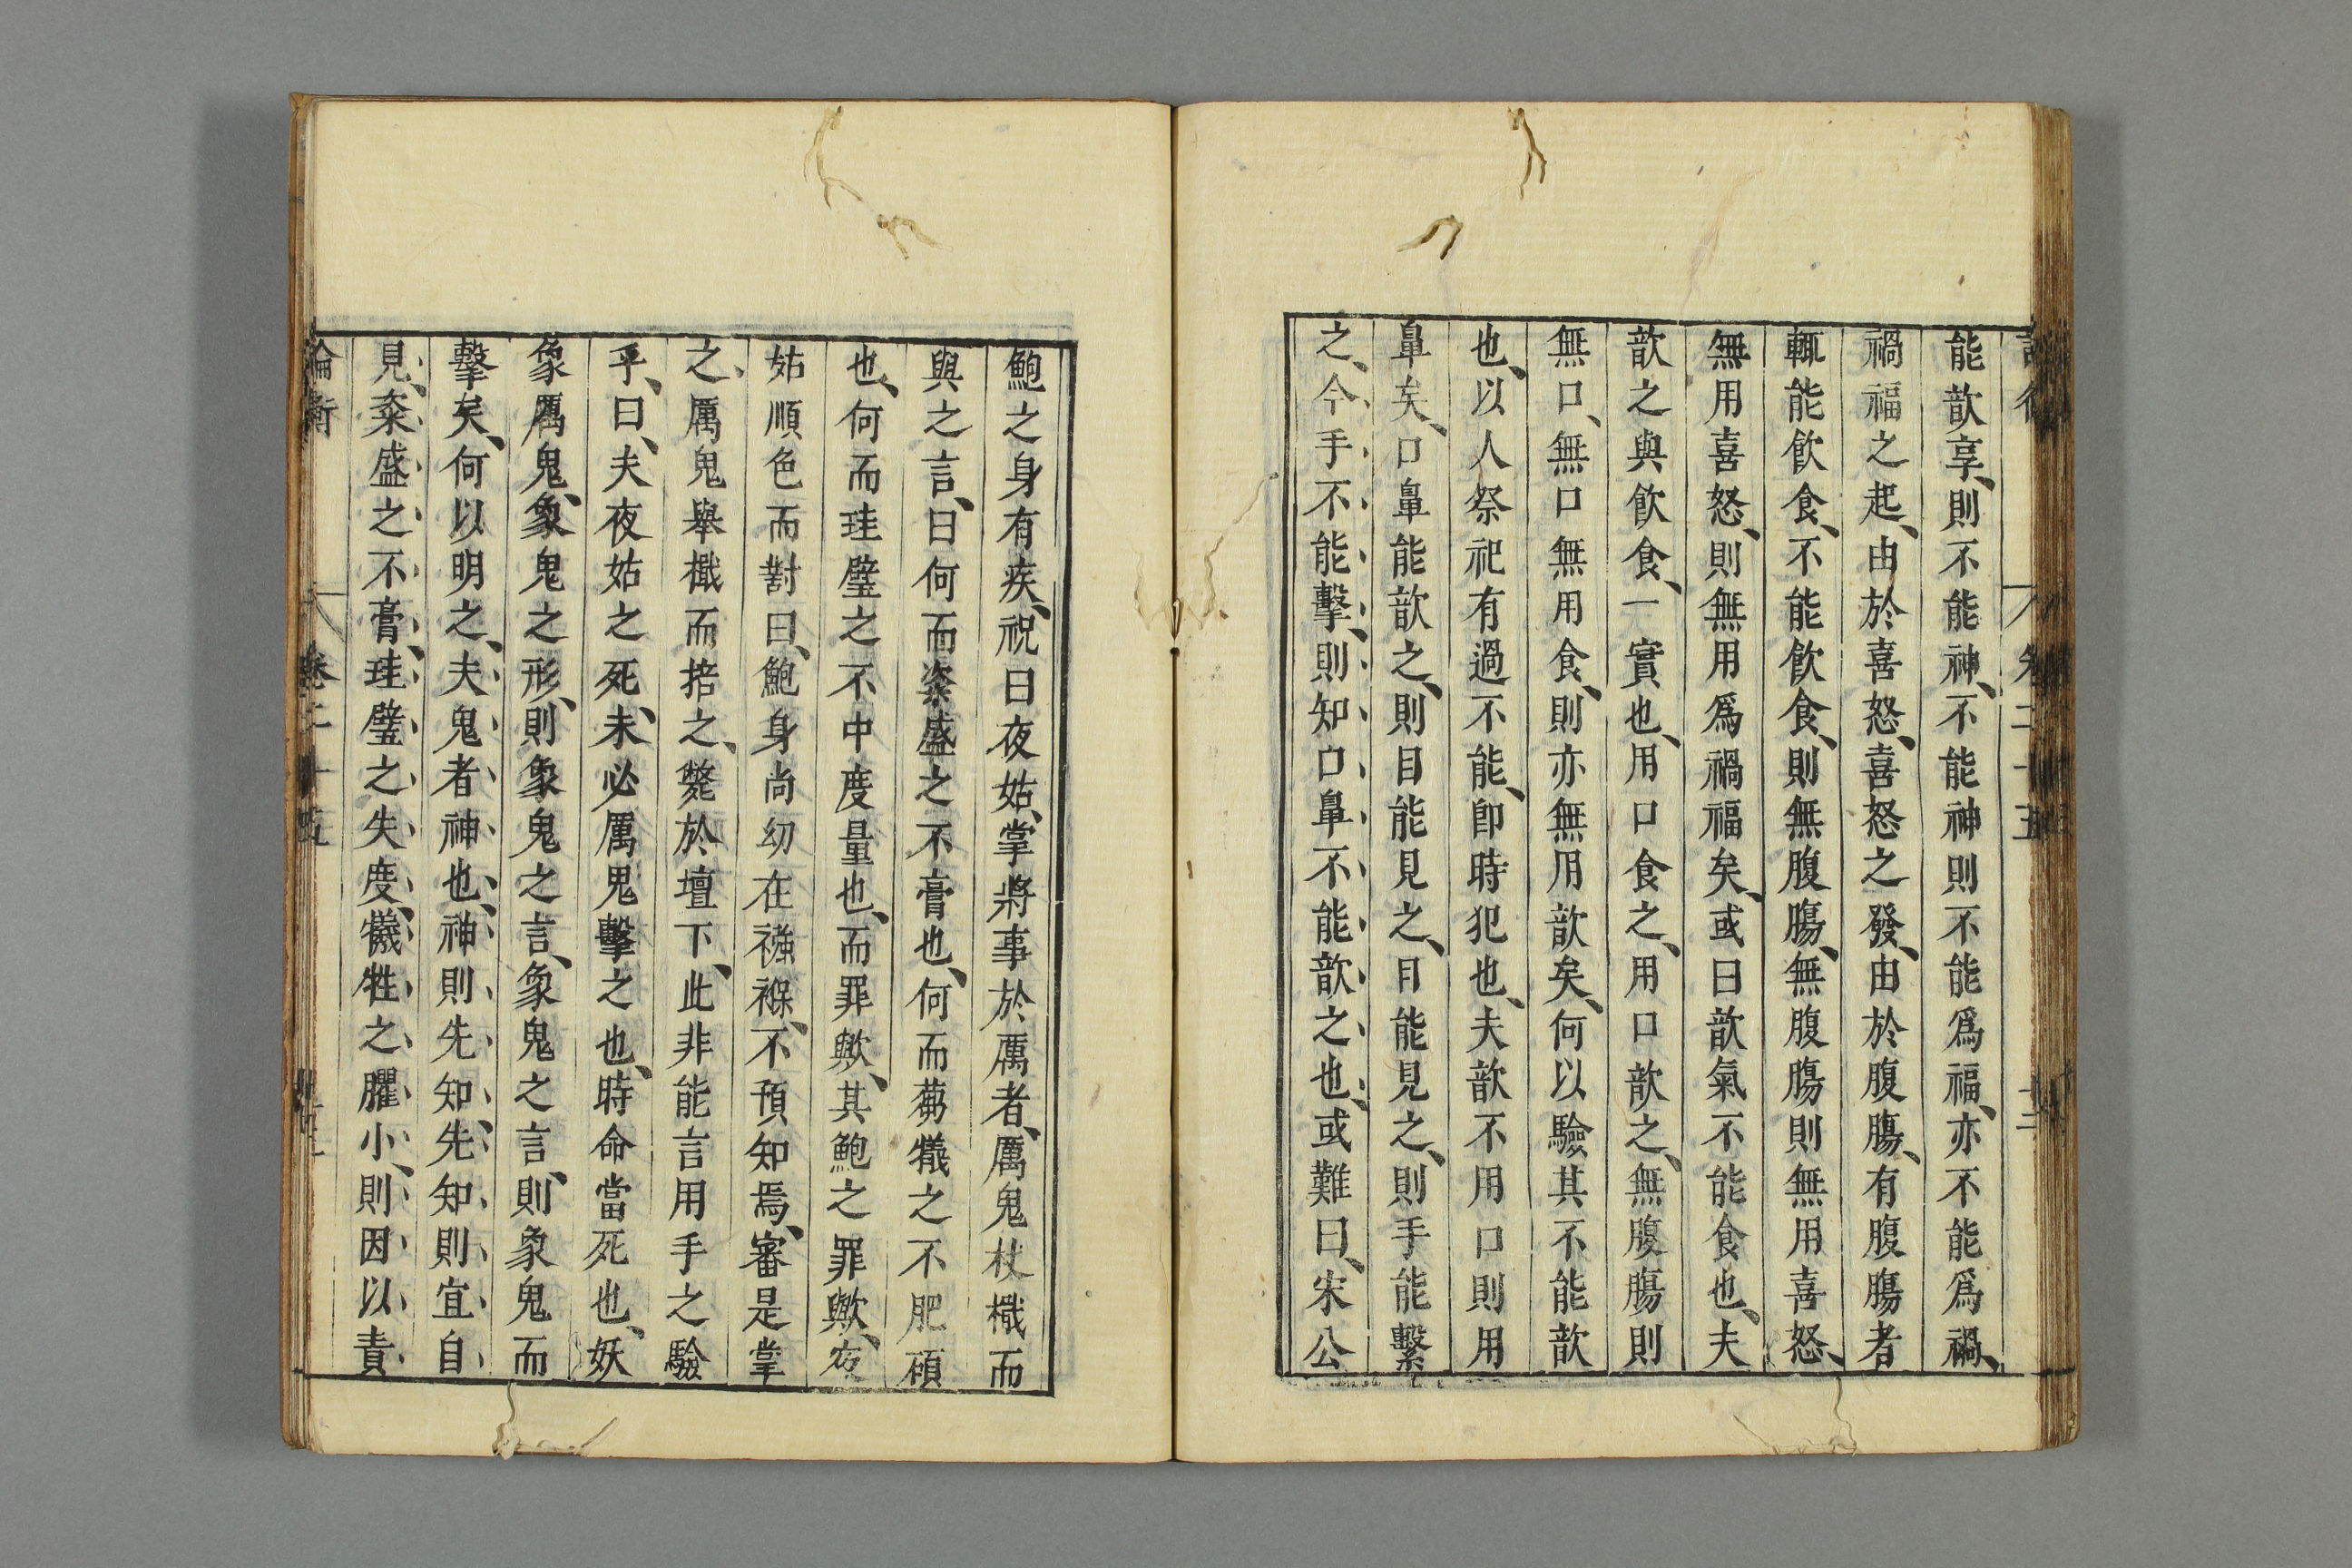 論衡 卷二十五
能歆享、則不能神、不能神則不能爲福、亦不能爲禍、
禍福之起、由於喜怒、喜怒之發、由於腹腸、有腹腸者
輒能飮食、不能飮食、則無腹腸、無腹腸則無用喜怒、
無用喜怒、則無用爲禍福矣、或曰歆氣不能食也、夫
歆之與飮食、一實也、用口食之、用口歆之、無腹腸則
無口、無口無用食、則亦無用歆矣、何以驗其不能歆
也、以人祭祀有過不能、卽時犯也、夫歆不用口則用
鼻矣、口鼻能歆之、則目能見之、目能見之、則手能繫
之、今手不能擊、則知口鼻不能歆之也、或難曰、宋公
鮑之身有疾、祝曰夜姑、掌將事於厲者、厲鬼杖檝而
與之言、曰何而粢盛之不膏也、何而蒭犧之不肥碩
也、何而珪璧之不中度量也、而罪歟、其鮑之罪歟、夜
姑順色而對曰、鮑身尚幼在襁褓、不預知焉、審是掌
之、厲鬼舉檝而掊之、斃於壇下、此非能言用手之驗
乎、曰、夫夜姑之死、未必厲鬼擊之也、時命當死也、妖
象厲鬼、象鬼之形、則象鬼之言、象鬼之言、則象鬼而
擊矣、何以明之、夫鬼者神也、神則先知、先知則宜自
見、粢盛之不膏、珪璧之失度、犧牲之臞小、則因以責
論衡 卷二十五